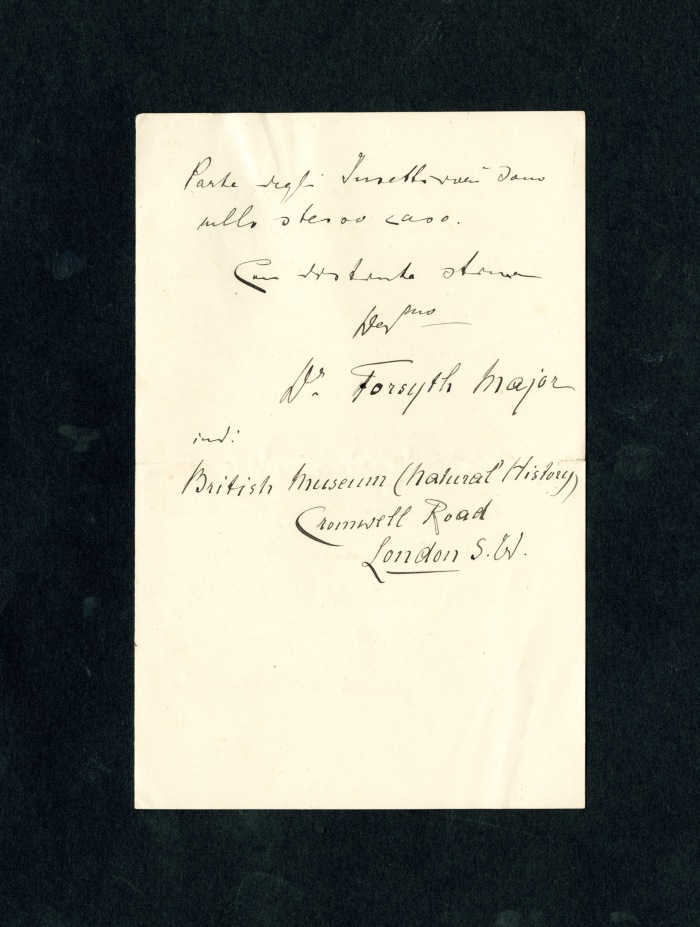 Parte degli Insettivori sono
nello stesso caso.
Con distinta stima
Dev^mo
Dr. Forsyth Major
ind:
British Museum (Natural History)
Cromwell Road
London S.W.